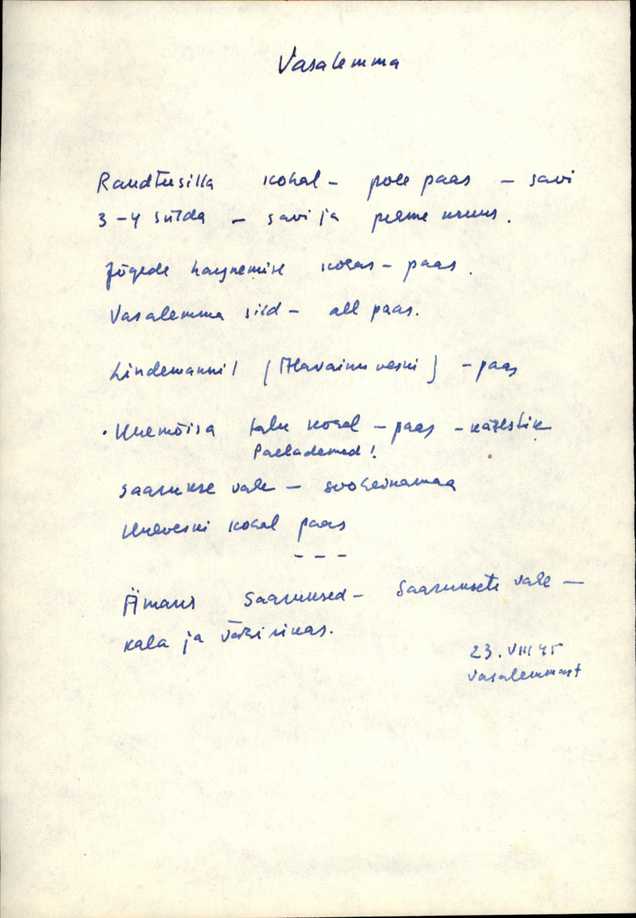 Vasalemma
Raudteesilla kohal - pole paas - savi
3-4 sülda - savi ja peene kruus.
Jõgede hargnemise kohas - paas.
Vasalemma sild - all paas.
Lindemanni (Allavainu veski) - paas
Unemõisa talu kohal - paas - kärestik
Paelademed!
Saarukse vahe - sooheinamaa
veski kohal paas
- - -
Saaruksed - Saaruksete vahe -
kala ja vähirikas.
23. VIII 45
Vasalemmast